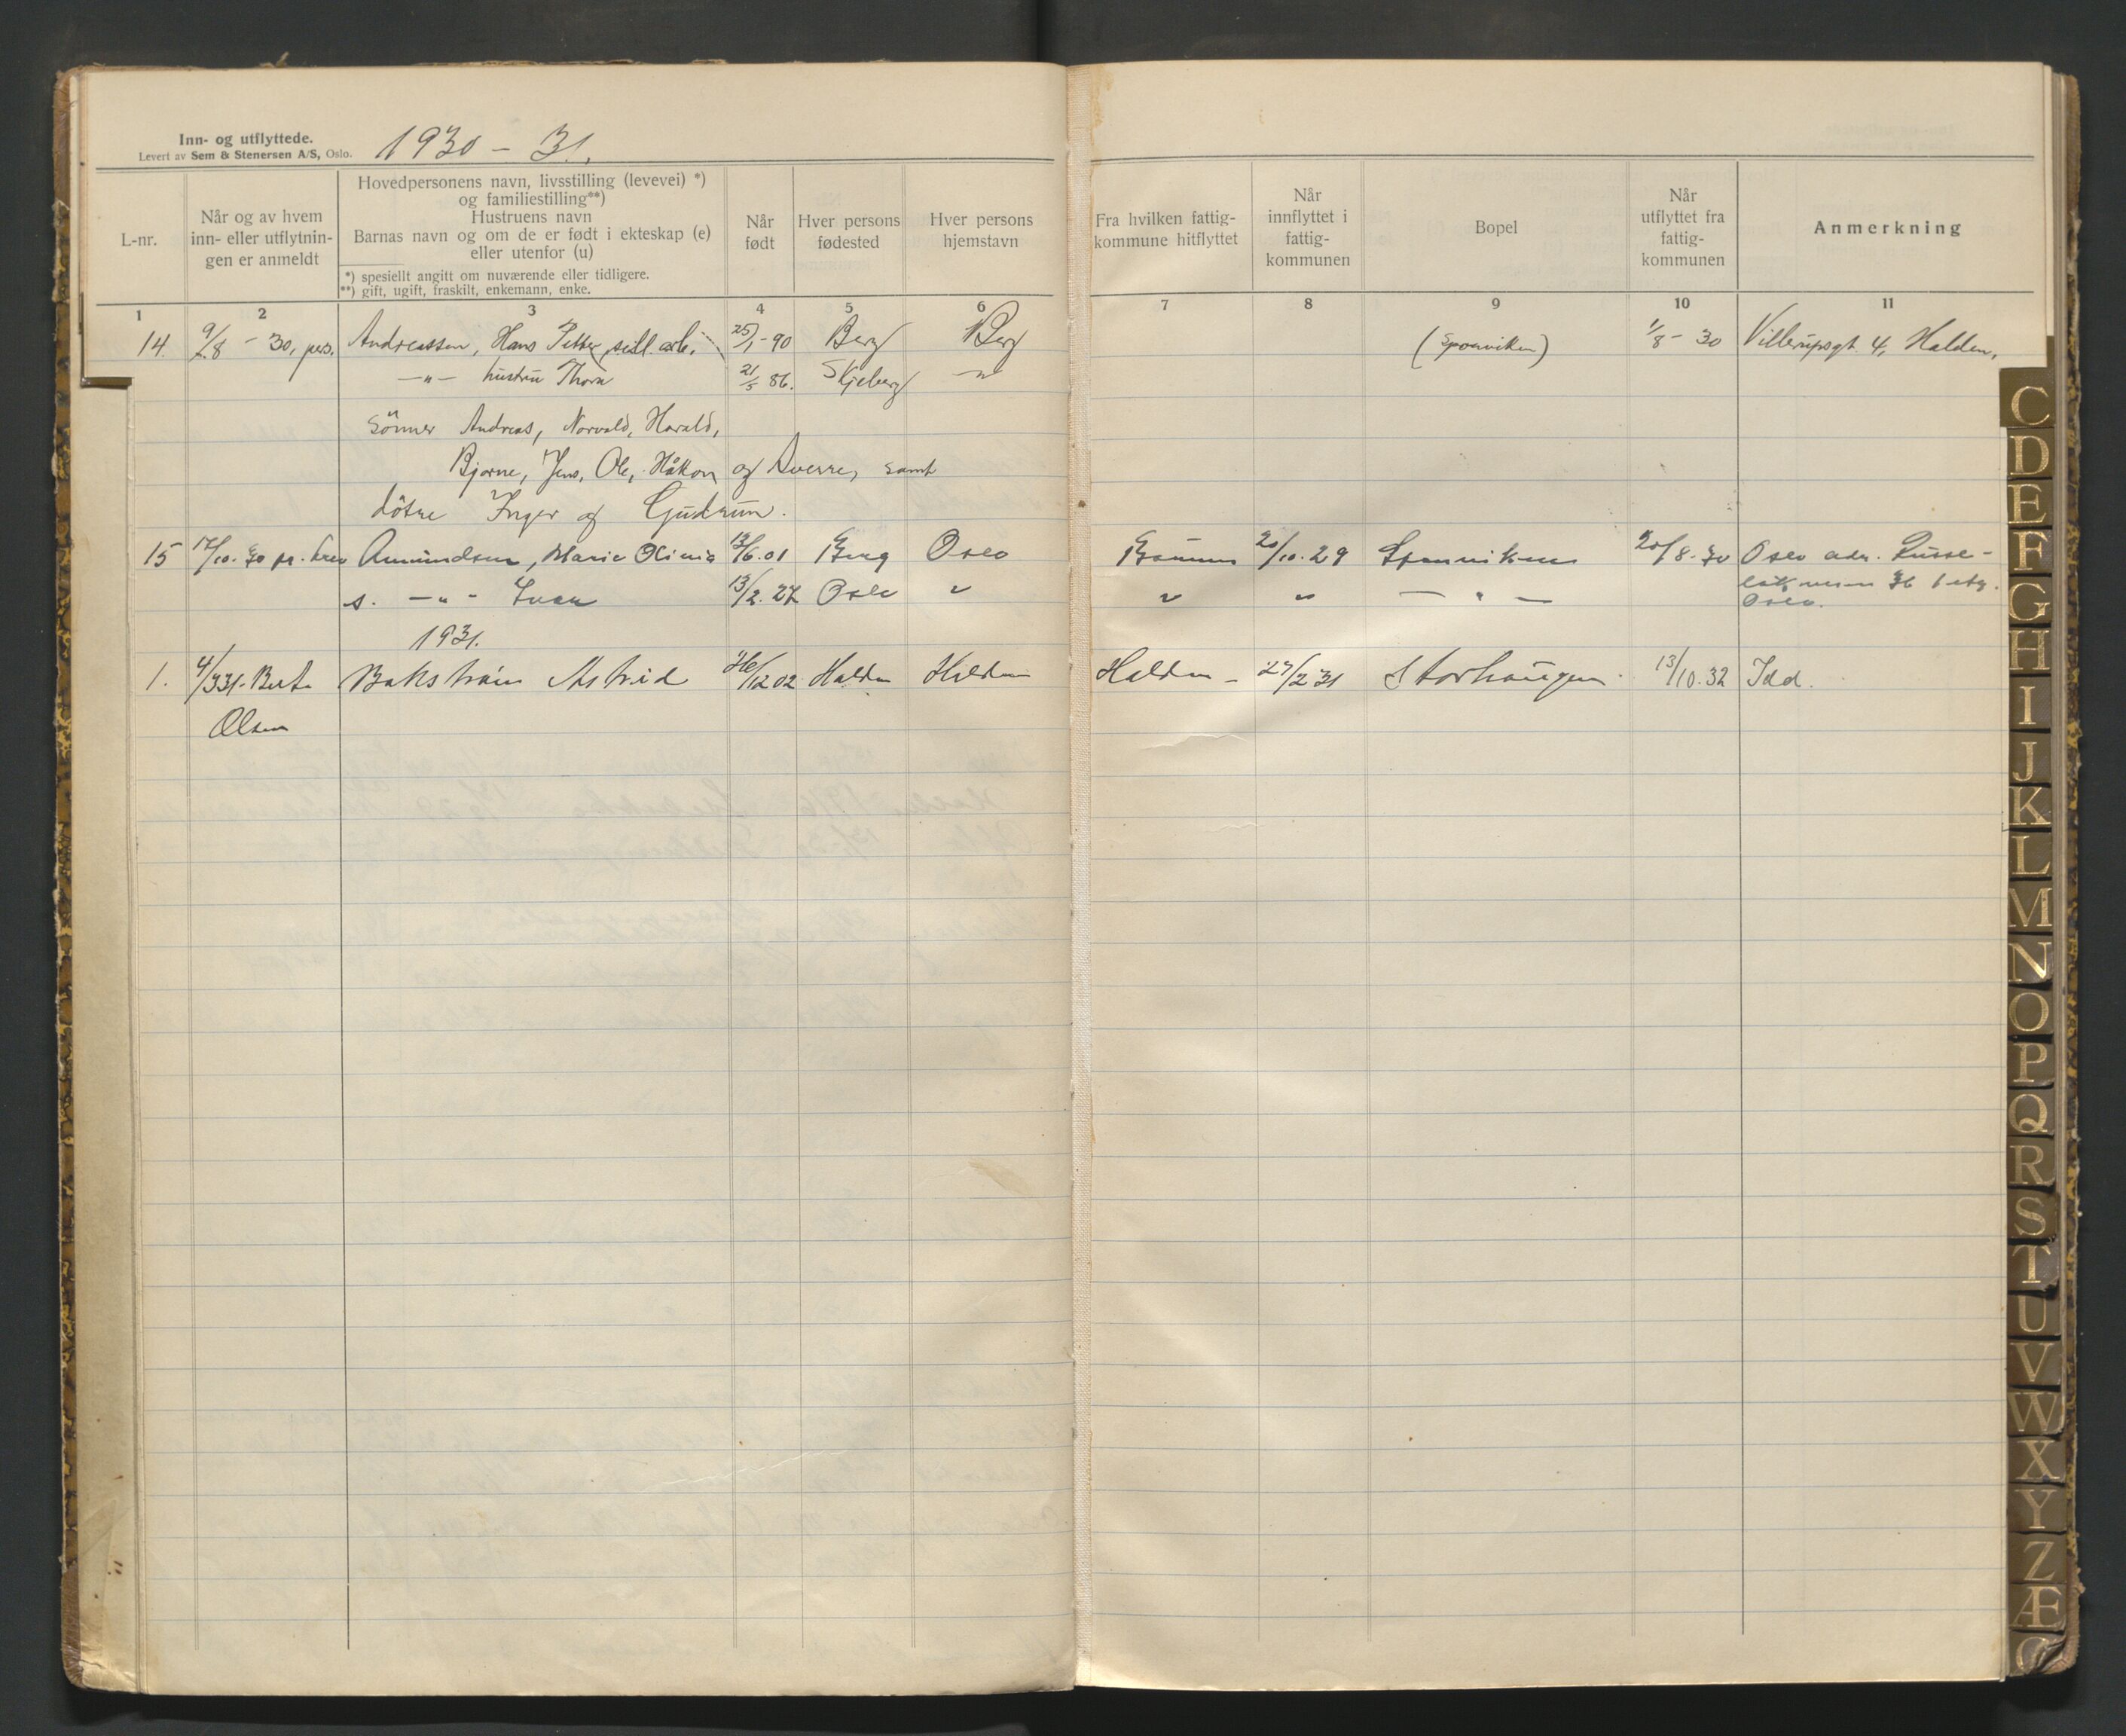 Inn- og utflyttede.
Levert av Sem & Stenersen A/S, Oslo.
1930 - 31.
L-nr.
Når og av hvem
inn- eller utflytnin-
gen er anmeldt
Hovedpersonens navn, livsstilling (levevei) *)
og familiestilling**)
Hustruens navn
Barnas navn og om de er født i ekteskap (e)
eller utenfor (u)
*) spesiellt angitt om nuværende eller tidligere.
**) gift, ugift, fraskilt, enkemann, enke.
Når
født
Hver persons
fødested
Hver persons
hjemstavn
Fra hvilken fattig-
kommune hitflyttet
Når
innflyttet i
fattig-
kommunen
Bopel
Når
utflyttet fra
fattig-
kommunen
Anmerkning
1 2 3 4 5 6 7 8 9 10 11
14. 9/8 - 30, pers. Andreassen, Hans Petter, arb. 25/1 - 90 Berg Berg (Sponviken) 1/8 - 30 Villerupsgt. 4, Halden.
-"- hustru Thora 21/5 86. Skjeberg -"-
sönner Andreas, Norvald, Harald,
Bjarne, Jens, Ole, Håkon og Sverre, samt
dötre Inger og Gudrun.
15 17/10. 30 pr. brev Amundsen, Marie Olivia 13/6. 01 Berg Oslo 20/10. 29 Sponviken 20/8. 30 Oslo adr.
s. -"- Ivar 13/2. 27 Oslo " " " - " - 36 1 etg.
Oslo.
1931.
1. 4/3 31. Berte Bakstrøm Astrid 26/12 02 Halden Halden Halden - 27/2 31 Storhaugen 13/10. 32 Idd.
Olsen
C
D
E
F
G
H
I
J
K
L
M
N
O
P
Q
R
S
T
U
V
W
X
Y
Z
Æ